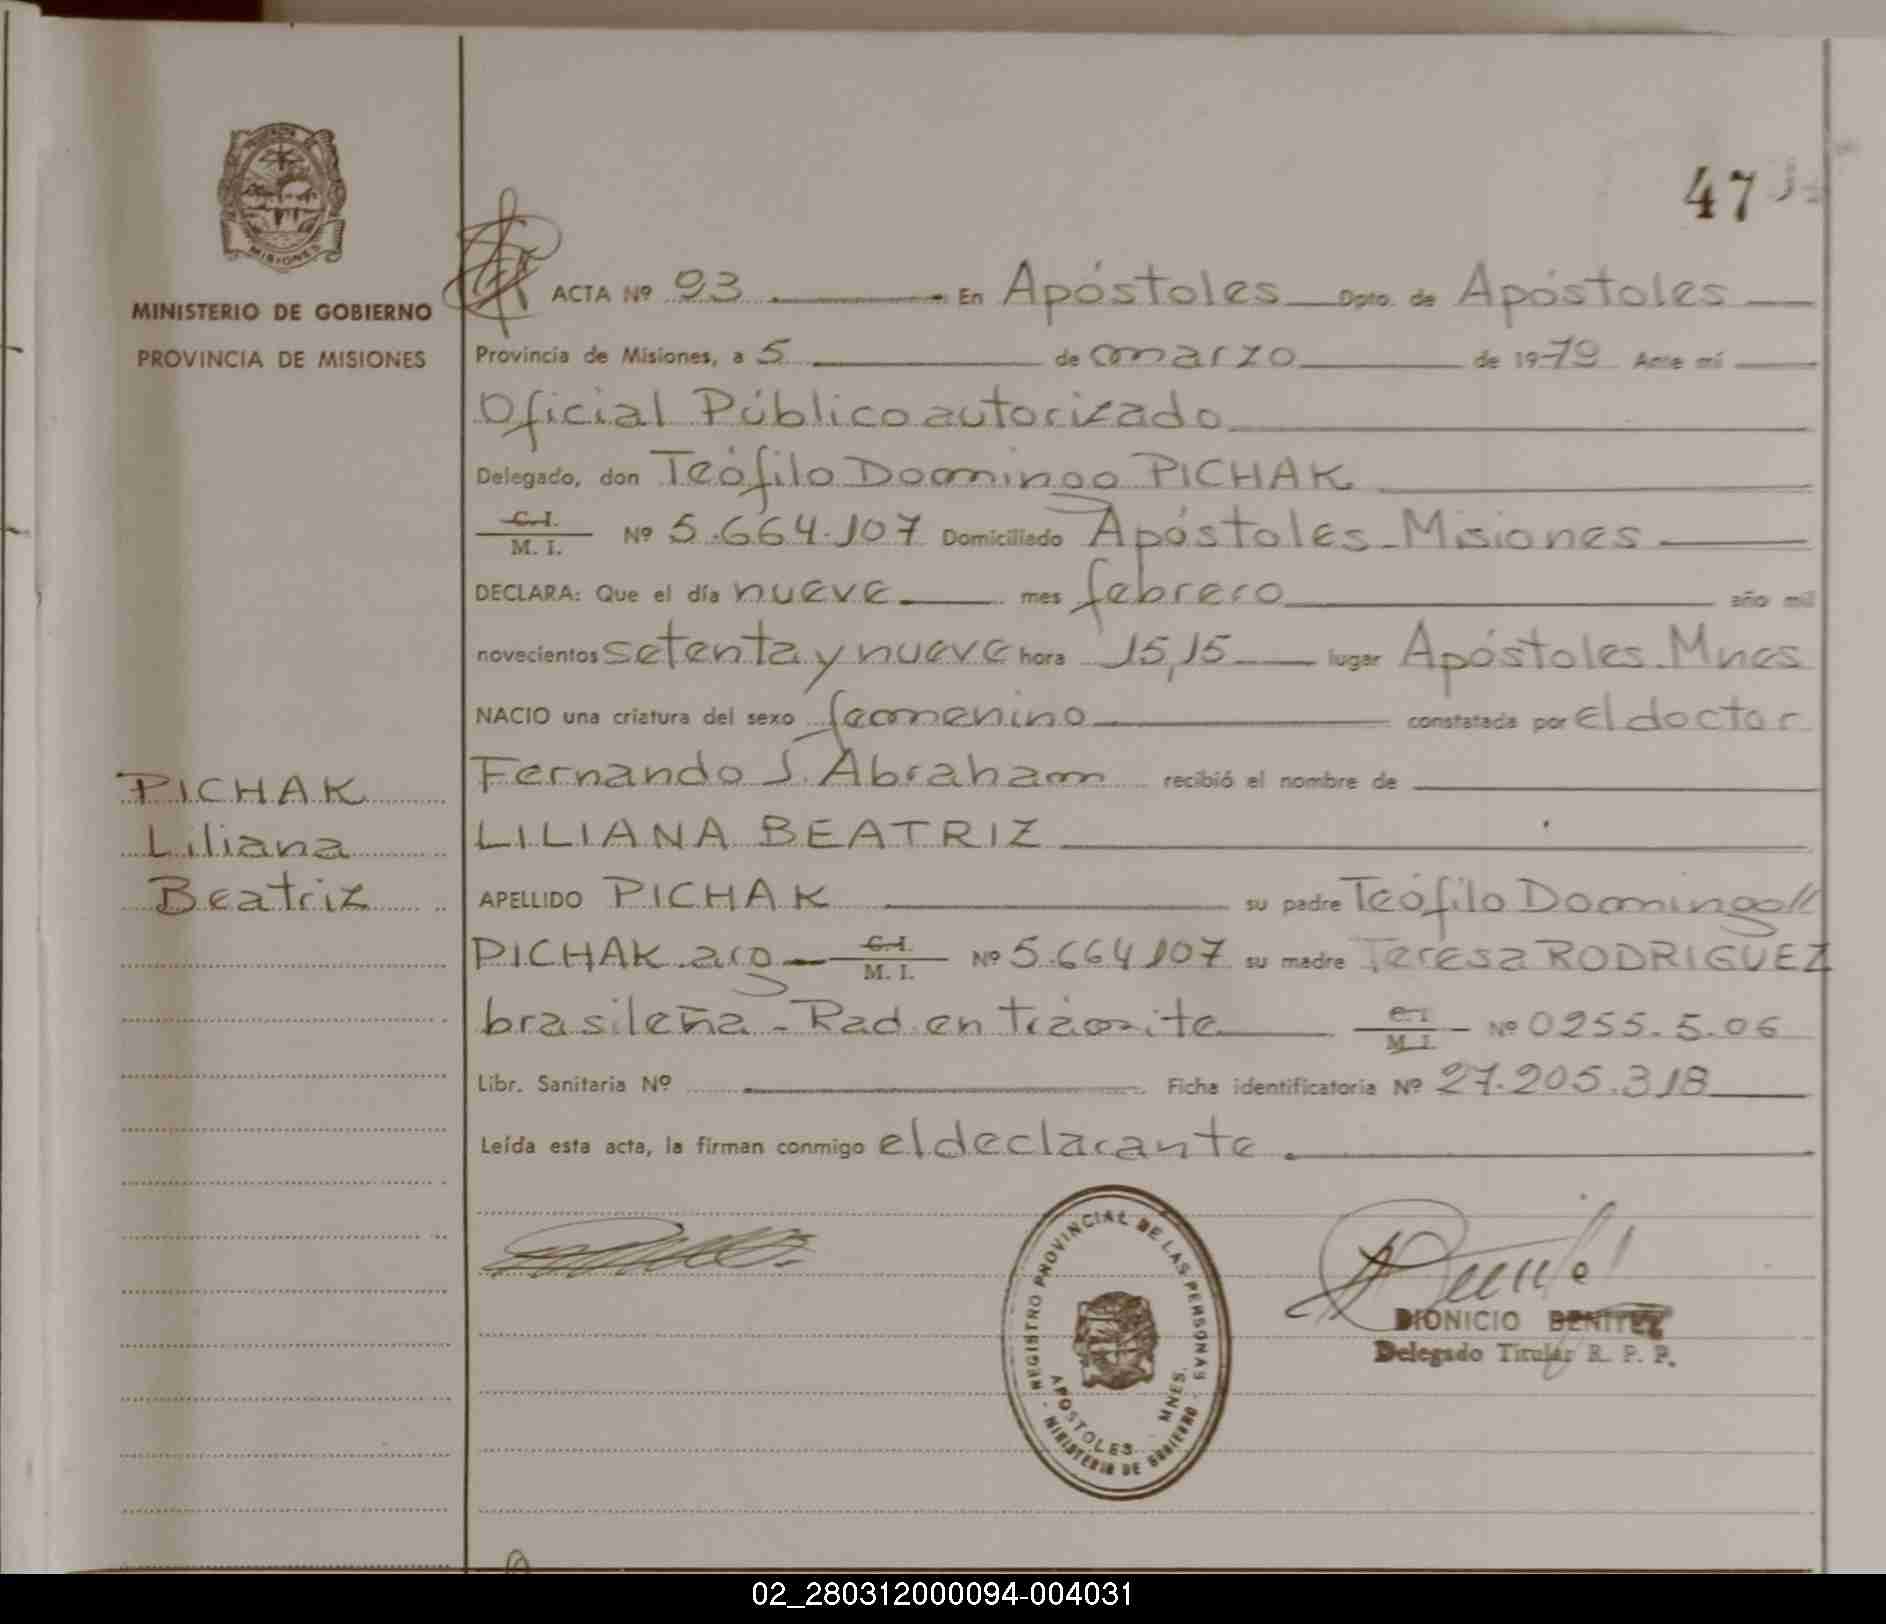 47
MISIONES
MINISTERIO DE GOBIERNO
PROVINCIA DE MISIONES
PICHAK
Liliana
Beatriz
ACTA Nº 93 En Apóstoles Dpto. de Apóstoles
Provincia de Misiones, a 5 de marzo de 1979 Ante mí
Oficial Público autorizado
Delegado, don Teófilo Domingo PICHAK
C.I. M. I. Nº 5.664.107 Domiciliado Apóstoles - Misiones
DECLARA: Que el día nueve mes febrero año mil
novecientos setenta y nueve hora 15,15 lugar Apóstoles. Mnes
NACIO una criatura del sexo femenino constatada por el doctor
Fernando J. Abraham recibió el nombre de
LILIANA BEATRIZ
APELLIDO PICHAK su padre Teófilo Domingo//
PICHAK arg C.I. M. I. Nº 5.664107 su madre Teresa RODRIGUEZ
brasileña - Rad. en trámite C.I. M. I. Nº 0255.5.06
Libr. Sanitaria Nº Ficha identificatoria Nº 27.205.318
Leída esta acta, la firman conmigo el declarante.
REGISTRO PROVINCIAL DE LAS PERSONAS
APOSTOLES MNES.
- MINISTERIO DE GOBIERNO -
DIONICIO BENITEZ
Delegado Titular R. P. P.
02_280312000094-004031